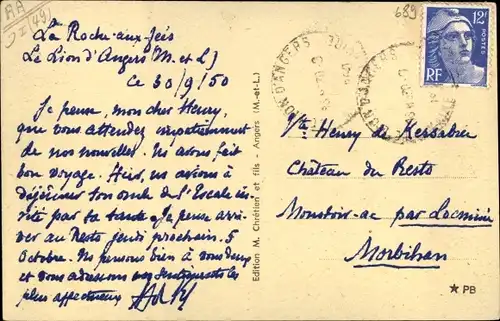 AA
(49)
La Roche-aux-Feis
Le Lion d'Angers (M. et L)
Ce 30/9/50
Je pense, mon cher Henry,
que vous attendez impatiemment
de nos nouvelles. Ns avons fait
bon voyage. Hier, ns avions à
déjeuner ton oncle de l'Escale in-
vité par ta tante. Je pense arri-
ver au Resto jeudi prochain 5
octobre. Ns pensons bien à vous deux
et vous adressons nos sentiments les
plus affectueux
Edition M. Chrétien et fils - Angers (M.-et-L.)
689
12F
POSTES
RF
LION D'ANGERS
Vte Henry de Kersabiec
Château du Resto
Moustoir-ac par Locminé
Morbihan
★ PB